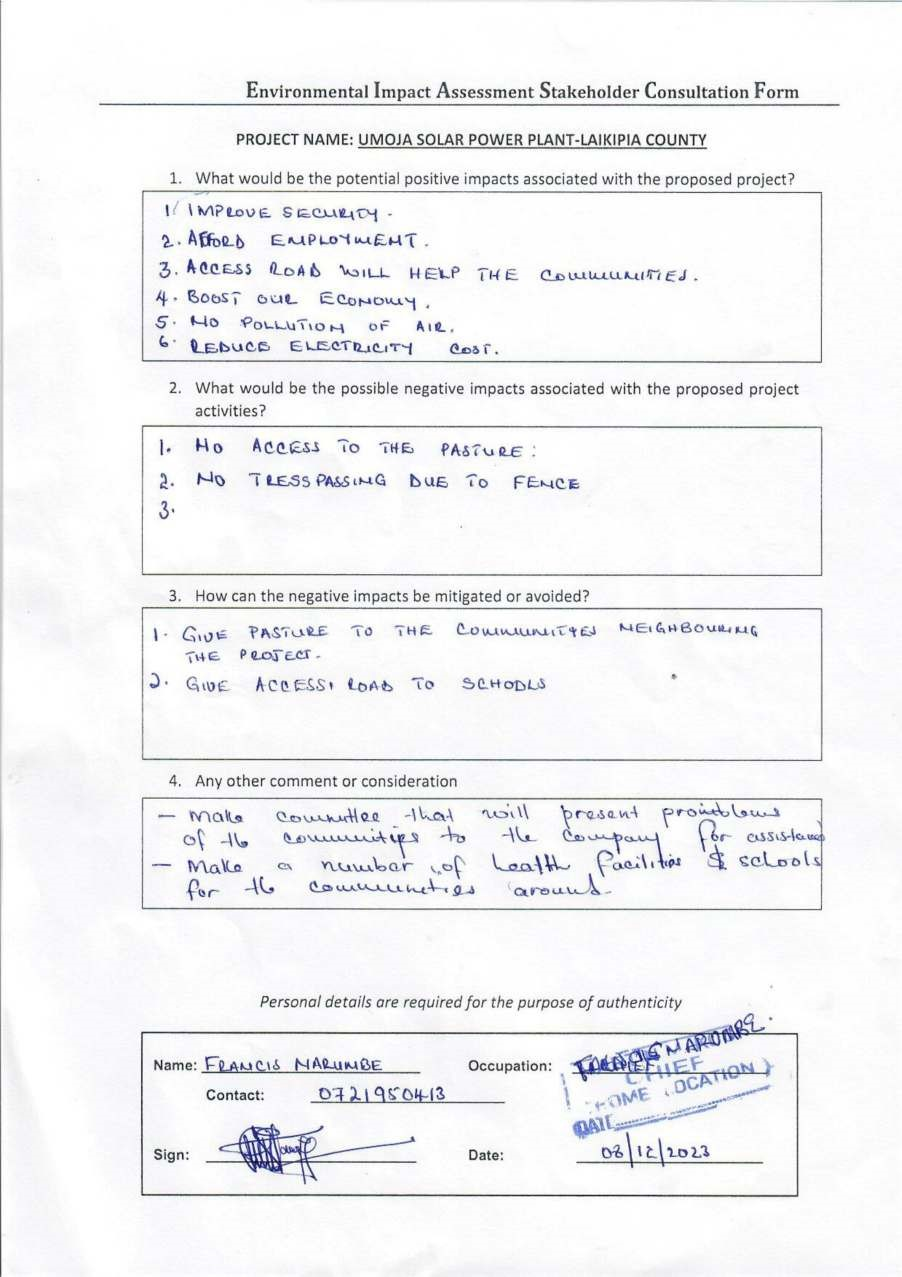 Environmental Impact Assessment Stakeholder Consultation Form
PROJECT NAME: UMOJA SOLAR POWER PLANT-LAIKIPIA COUNTY
1. What would be the potential positive impacts associated with the proposed project?
1/ IMPROVE SECURITY.
2. AFFORD EMPLOYMENT.
3. ACCESS ROAD WILL HELP THE COMMUNITIES.
4. BOOST OUR ECONOMY.
5. NO POLLUTION OF AIR.
6. REDUCE ELECTRICITY COST.
2. What would be the possible negative impacts associated with the proposed project
activities?
1. NO ACCESS TO THE PASTURE:
2. NO TRESSPASSING DUE TO FENCE
3.
3. How can the negative impacts be mitigated or avoided?
1. GIVE PASTURE TO THE COMMUNITYES NEIGHBOURING
THE PROJECT.
2. GIVE ACCESS ROAD TO SCHOOLS
4. Any other comment or consideration
– Make committee that will present
of the communities to the company for assistance
– Make a number of health facilities & schools
for the communeties around.
Personal details are required for the purpose of authenticity
Name: FRANCIS MARUMBE Occupation: CHIEF
CHIEF
LOCATION)
Contact: 0721950413
DATE
Sign: Date: 08/12/2023